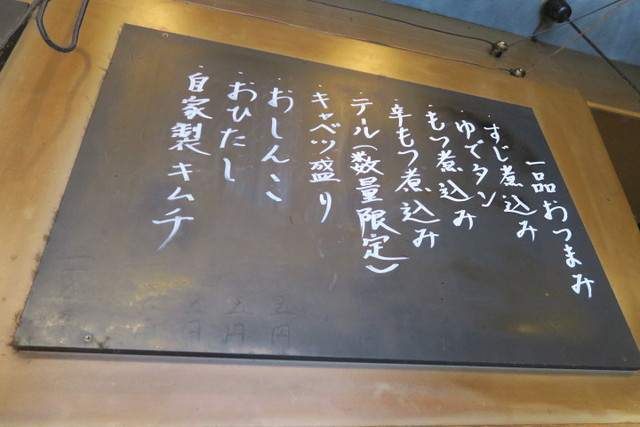 一品おつまみ
・すじ煮込み
・ゆでタン
・もつ煮込み
・辛もつ煮込み
・テール(数量限定)
・キャベツ盛り
・おしんこ
・おひたし
・自家製キムチ